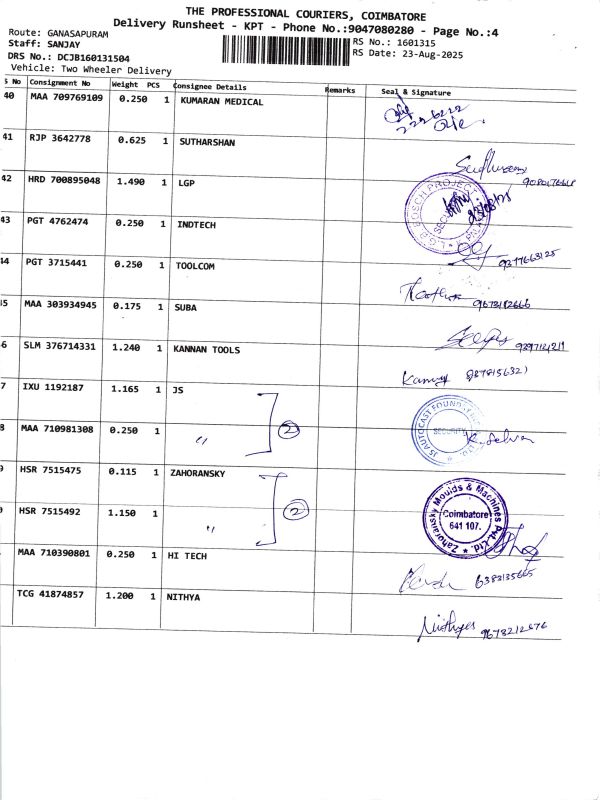 THE PROFESSIONAL COURIERS, COIMBATORE
Delivery Runsheet - KPT - Phone No.:9047080280 - Page No.:4
Route: GANASAPURAM
Staff: SANJAY
RS No.: 1601315
DRS No.: DCJB160131504
RS Date: 23-Aug-2025
Vehicle: Two Wheeler Delivery
S No Consignment No Weight PCS Consignee Details Remarks Seal & Signature
40 MAA 709769109 0.250 1 KUMARAN MEDICAL
41 RJP 3642778 0.625 1 SUTHARSHAN
42 HRD 700895048 1.490 1 LGP
43 PGT 4762474 0.250 1 INDTECH
44 PGT 3715441 0.250 1 TOOLCOM
45 MAA 303934945 0.175 1 SUBA
6 SLM 376714331 1.240 1 KANNAN TOOLS
7 IXU 1192187 1.165 1 JS
8 MAA 710981308 0.250 1 " 2
SECURITY
9 HSR 7515475 0.115 1 ZAHORANSKY
0 HSR 7515492 1.150 1 " 2
Zahoransky Moulds & Machines Pvt.Ltd.
Coimbatore
641 107.
MAA 710390801 0.250 1 HI TECH
TCG 41874857 1.200 1 NITHYA